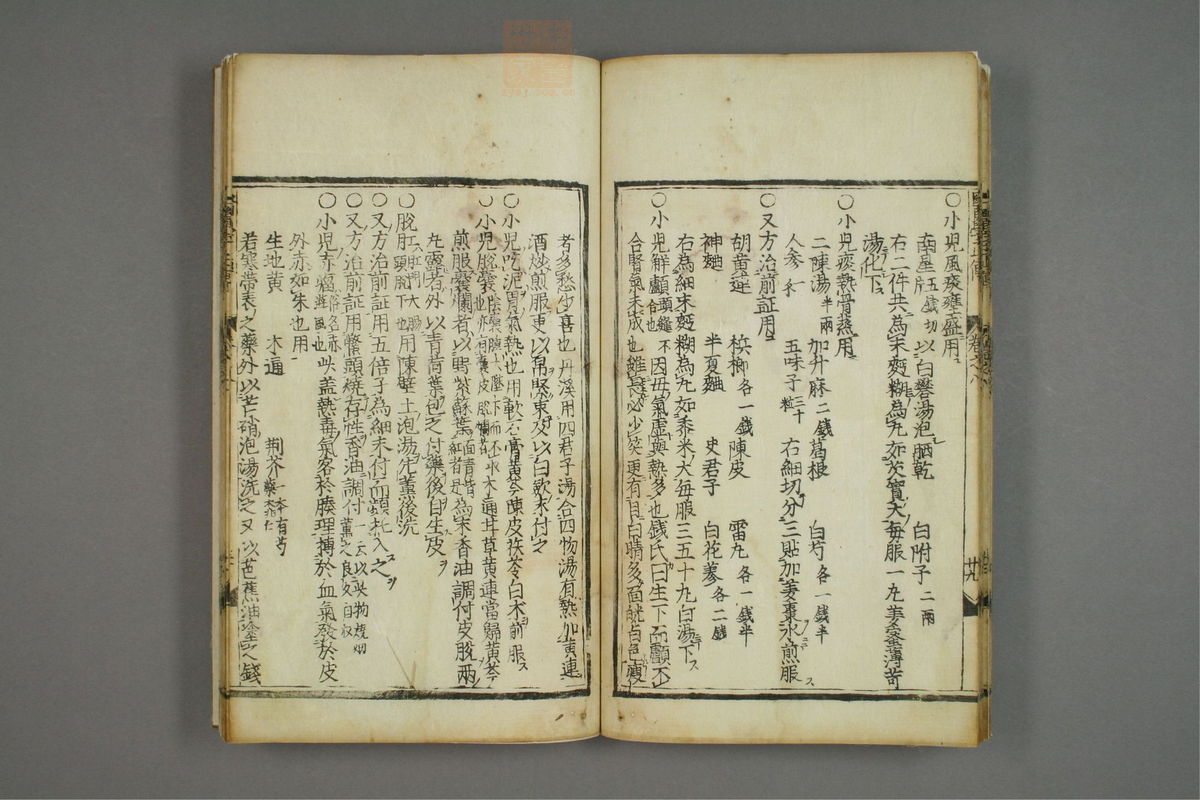 ○小児風痰壅盛用
南星 五錢切片 以白礬湯泡晒乾 白附子二兩
右二件共為末麪糊為丸如芡實大毎服一丸姜蜜薄苛
湯化下
○小児痰熱骨蒸用
二陳湯半兩 加升麻二錢 葛根 白芍各一錢半
人參 五味子三十粒 右細切分三貼加姜棗水煎服
○又方治前証用
胡黄連 梹榔各一錢 陳皮 雷丸各一錢半
神麯 半夏麯 史君子 白花蔘各二錢
右為細末麪糊為丸如黍米大毎服三五十丸白湯下
○小児解顱頭縫不合也 因母氣虚與熱多也錢氏曰生下而顱不
合腎氣未成也雖長必少笑更有目白睛多面㿠白色瘦
者多愁少喜也丹溪用四君子湯合四物湯有熱加黄連
酒炒煎服更以帛緊束及以白歛末付之
○小児吃泥胃氣熱也用軟石膏黄芩陳皮茯苓白木煎服
○小児脱囊 木通甘草黄連當歸黄芩
煎服囊爛者以野紫蘇葉面青背紅者是為末香油調付皮脱兩
丸露者外以青荷葉包之付藥後自生皮
○脱肛肛門大腸頭脱下也 用陳壁土泡湯先薫後洗
○又方治前証用五倍子為細末付而頻托入之
○又方治前証用鱉頭燒存性香油調付一云以此物燒烟薫之良久自収
○小児赤瘤 此盖熱毒氣客於腠理搏於血氣發於皮
外赤如朱也用
生地黄 木通 荊芥一本有芍藥桃仁
若寒帶表之藥外以芒硝泡湯洗之又以芭蕉油塗之錢